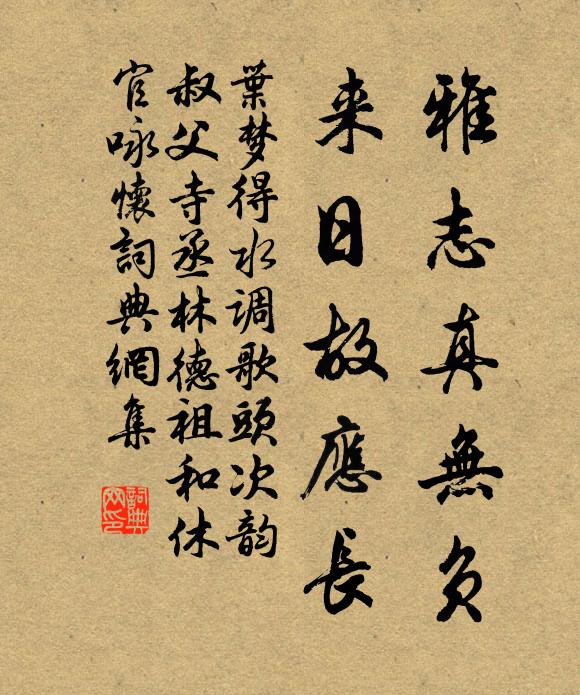 雅志真無負
来日故應長
葉梦得水调歌頭次韵
叔父寺丞林德祖和休
官咏懷詞典網集
詞典网印